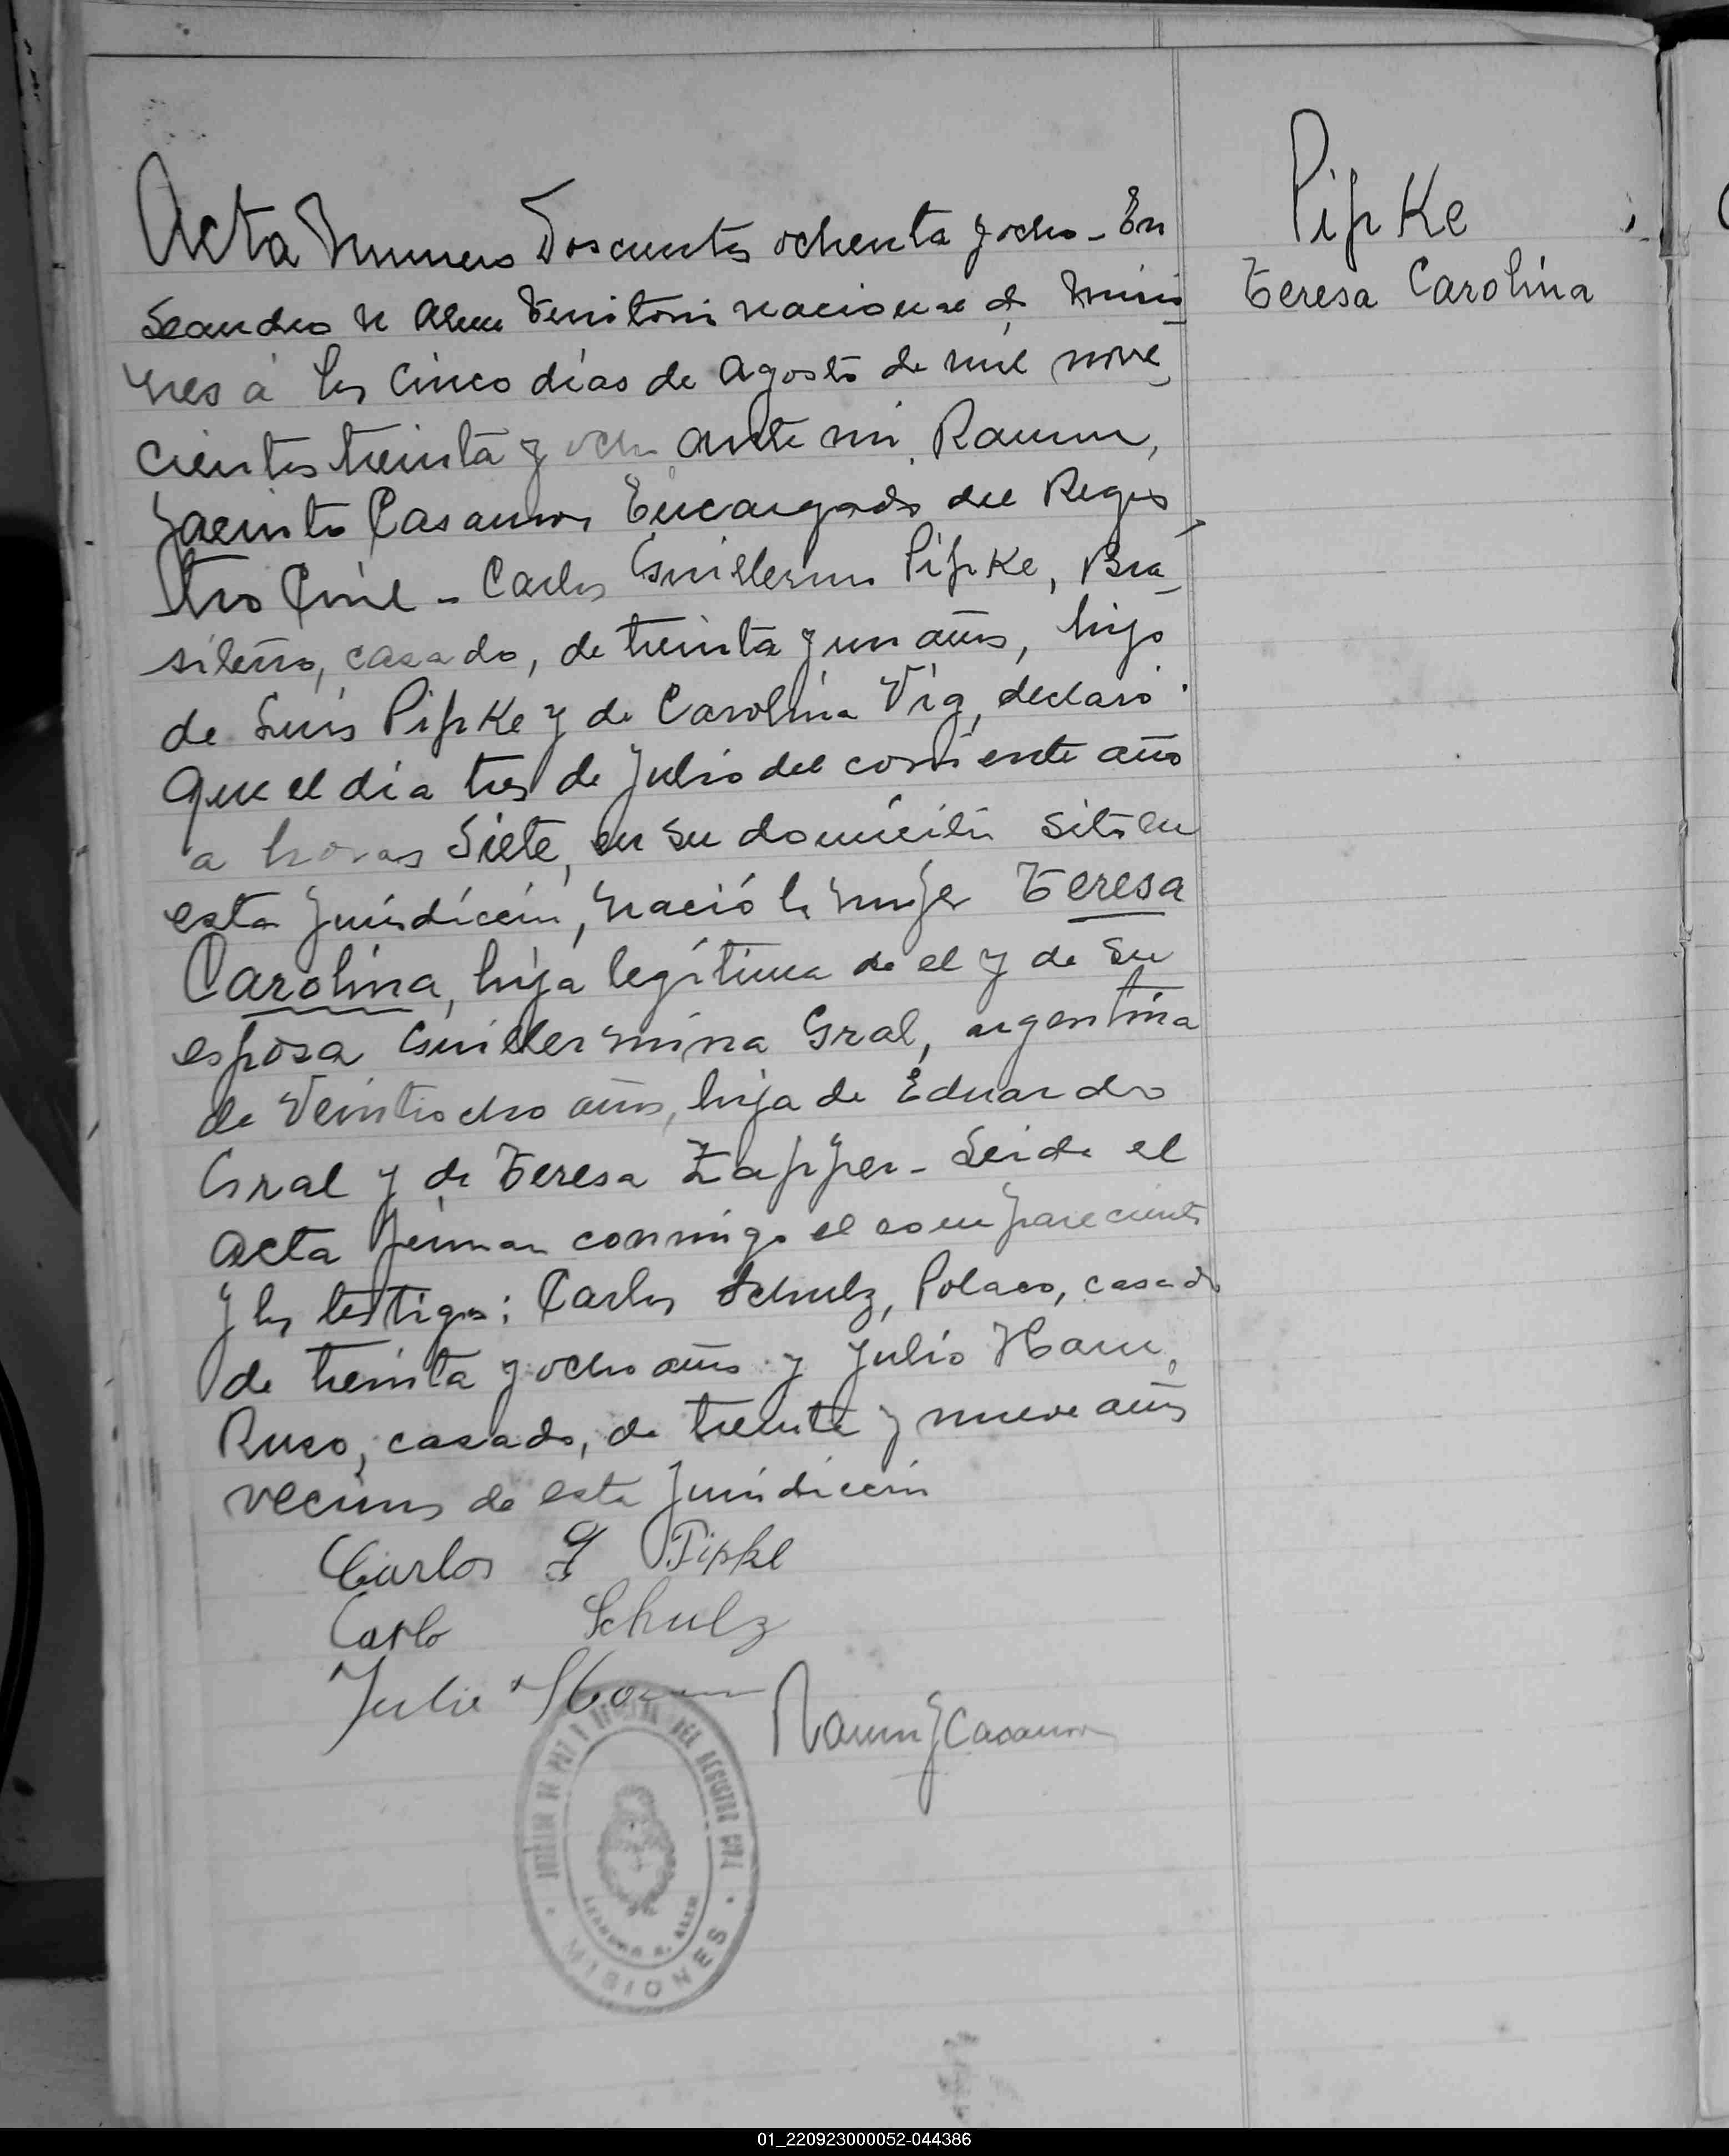 Pipke
Teresa Carolina
Acta Numero Doscientos ochenta y ocho - En
Leandro N Alem Territorio nacional de Misio
nes a los cinco días de Agosto de mil nove
cientos treinta y ocho ante mi, Ramon,
Jacinto Casamor Encargado del Regis
tro Civil - Carlos Guillermo Pipke, Bra
sileño, casado, de treinta y un años, hijo
de Luis Pipke y de Carolina Vig, declaró
que el día tres de Julio del corriente año
a horas Siete, en su domicilio sito en
esta Jurisdicción, nació la mujer Teresa
Carolina, hija legítima de el y de su
esposa Guillermina Gral, argentina
de Veintiocho años, hija de Eduardo
Gral y de Teresa Zapper - Leida el
acta firman conmigo el compareciente
y los testigos: Carlos Schulz, Polaco, casado
de treinta y ocho años y Julio Ham,
Ruso, casado, de treinta y nueve años
vecinos de esta Jurisdicción
Carlos G Pipke
Carlo Schulz
Julio
Ramon J Casamor
JUZGADO DE PAZ DEL REGISTRO CIVIL
LEANDRO N. ALEM
MISIONES
01_220923000052-044386